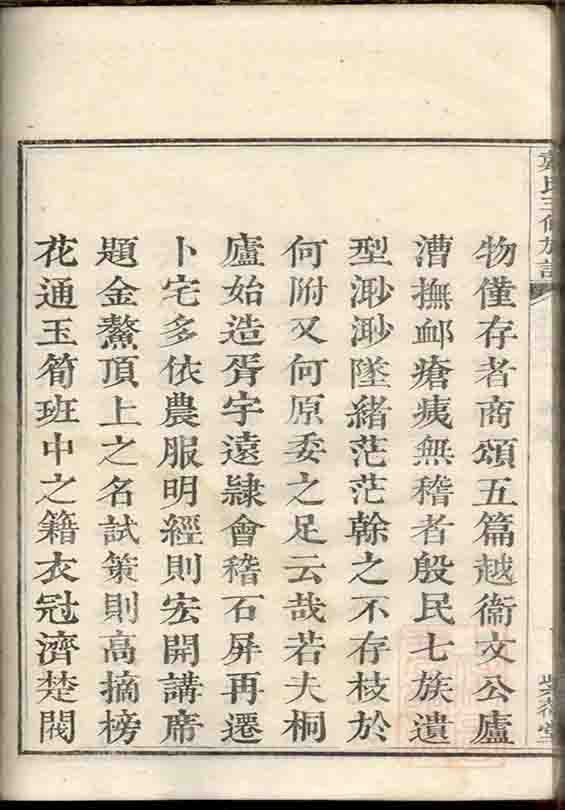 氏三修族譜
物僅存者商頌五篇越衞文公廬
漕撫卹瘡痍無稽者殷民七族遺
型渺渺墜緒茫茫榦之不存枝於
何附又何原委之足云哉若夫桐
廬始造胥宇遠隷會稽石屏再遷
卜宅多依農服明經則宏開講席
題金鰲頂上之名試策則高摘榜
花通玉筍班中之籍衣冠濟楚閥